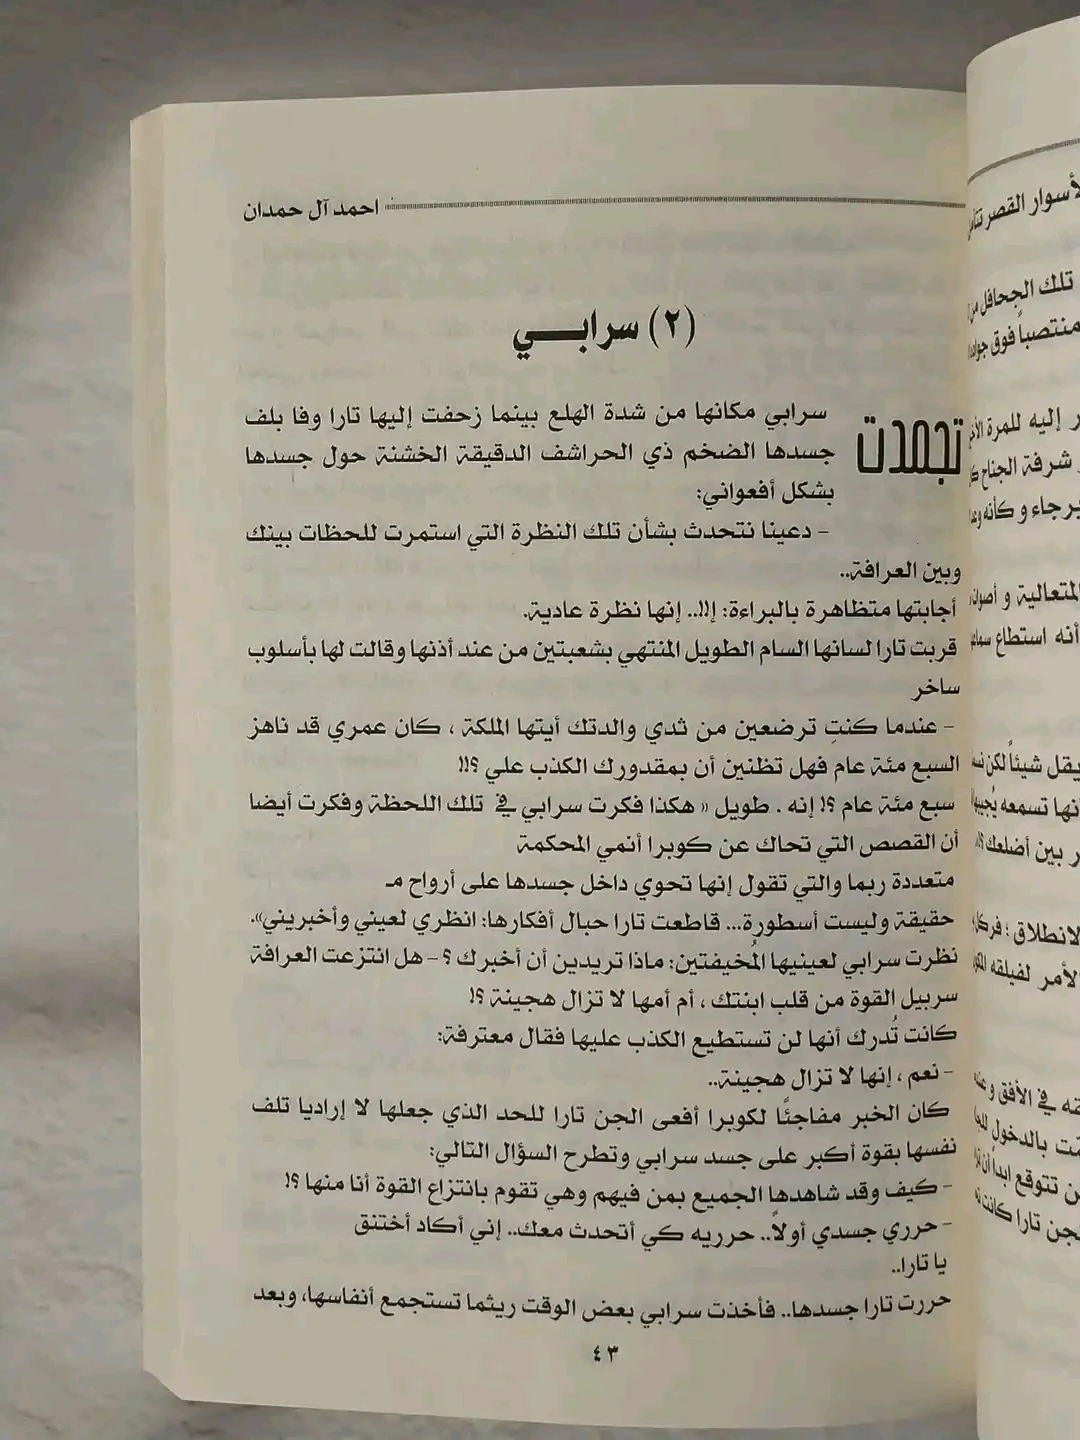 احمد آل حمدان
(٢) سرابي
تجمدت سرابي مكانها من شدة الهلع بينما زحفت إليها تارا وفا بلف
جسدها الضخم ذي الحراشف الدقيقة الخشنة حول جسدها
بشكل أفعواني:
- دعينا نتحدث بشأن تلك النظرة التي استمرت للحظات بينك
وبين العرافة..
أجابتها متظاهرة بالبراءة: إ!!.. إنها نظرة عادية.
قربت تارا لسانها السام الطويل المنتهي بشعبتين من عند أذنها وقالت لها بأسلوب
ساخر
- عندما كنتِ ترضعين من ثدي والدتك أيتها الملكة ، كان عمري قد ناهز
السبع مئة عام فهل تظنين أن بمقدورك الكذب علي ؟!!
سبع مئة عام ؟! إنه . طويل « هكذا فكرت سرابي في تلك اللحظة وفكرت أيضا
أن القصص التي تحاك عن كوبرا أنمي المحكمة
متعددة ربما والتي تقول إنها تحوي داخل جسدها على أرواح مـ
حقيقة وليست أسطورة... قاطعت تارا حبال أفكارها: انظري لعيني وأخبريني».
نظرت سرابي لعينيها المُخيفتين: ماذا تريدين أن أخبرك ؟ - هل انتزعت العرافة
سربيل القوة من قلب ابنتك ، أم أمها لا تزال هجينة ؟!
كانت تُدرك أنها لن تستطيع الكذب عليها فقال معترفة:
- نعم ، إنها لا تزال هجينة..
كان الخبر مفاجئًا لكوبرا أفعى الجن تارا للحد الذي جعلها لا إراديا تلف
نفسها بقوة أكبر على جسد سرابي وتطرح السؤال التالي:
- كيف وقد شاهدها الجميع بمن فيهم وهي تقوم بانتزاع القوة أنا منها ؟!
- حرري جسدي أولاً.. حرريه كي أتحدث معك.. إني أكاد أختنق
يا تارا..
حررت تارا جسدها.. فأخذت سرابي بعض الوقت ريثما تستجمع أنفاسها، وبعد
٤٣
لأسوار القصر
تلك الجحافل من
منتصباً فوق
إليه للمرة
شرفة الجناح
برجاء و كأنه
المتعالية و أصوات
أنه استطاع
يقل شيئاً لكن
تسمعه
بين أضلعك
الانطلاق ؛
الأمر لفيلقه
في الأفق و
بالدخول
تتوقع ابداً أن
تارا كانت